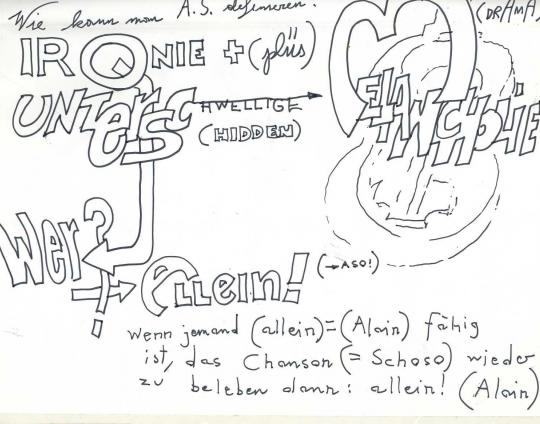 Wie kann man A.S. definieren.
(DRAMA)
IRONIE + (plüs)
UNTERSCHWELLIGE MELANCHOLIE
(HIDDEN)
Wer?
Allein! (→ ASO!)
wenn jemand (allein) = (Alain) fähig
ist, das Chanson (= Schoso) wieder
zu beleben dann: allein! (Alain)